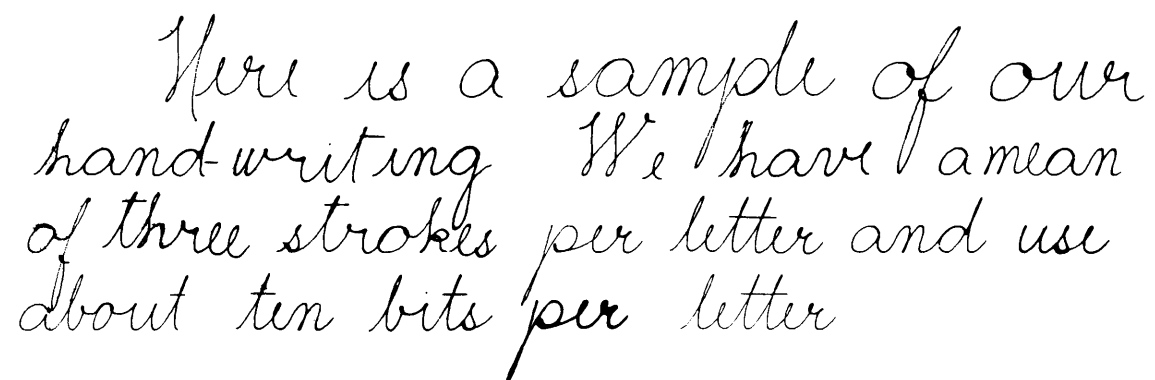 Here is a sample of our
hand-writing We have a mean
of three strokes per letter and use
about ten bits per letter